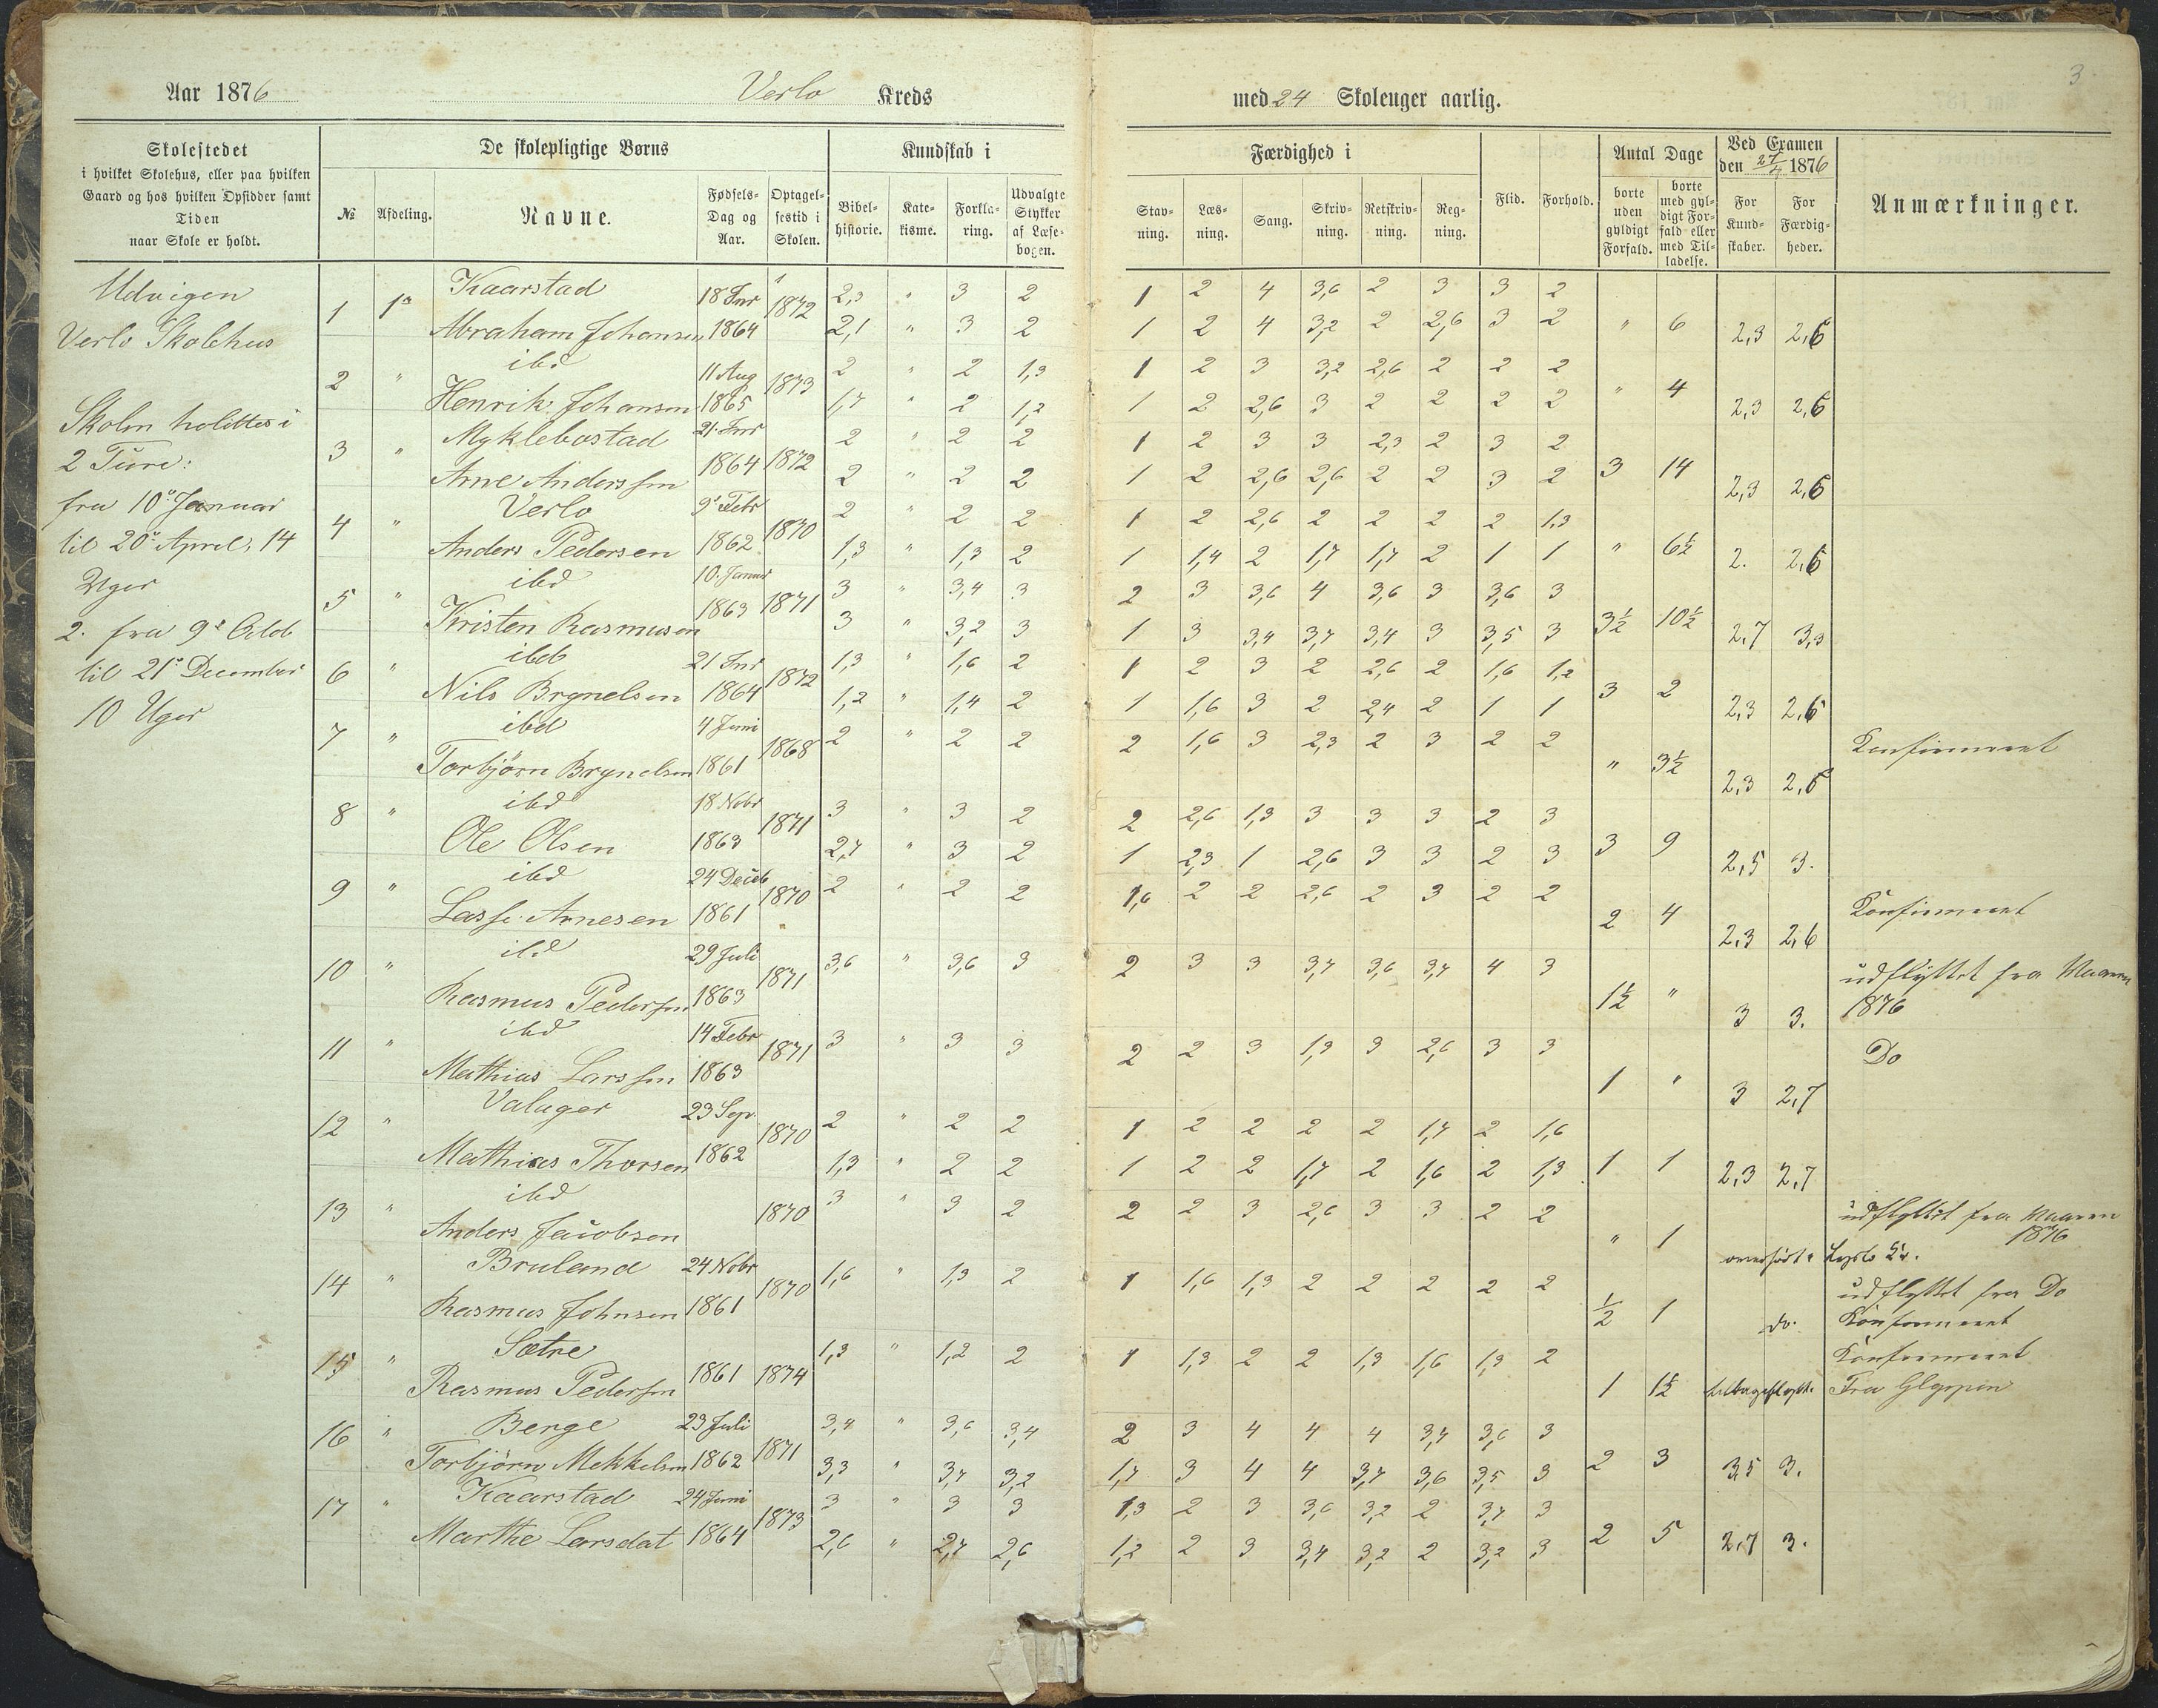 Aar 1876 Verlo Kreds med 24 Skoleuger aarlig. 3
Skolestedet
i hvilket Skolehus, eller paa hvilken
Gaard og hos hvilken Opsidder samt
Tiden
naar Skole er holdt.
De skolepligtige Børns
№ Afdeling. Navne. Fødsels-Dag og Aar. Optagelsestid i Skolen.
Kundskab i
Bibelhistorie. Katekisme. Forklaring. Udvalgte Stykker af Læsebogen.
Færdighed i
Stavning. Læsning. Sang. Skrivning. Retskrivning. Regning.
Flid. Forhold.
Antal Dage
borte uden gyldigt Forfald. borte med gyldigt Forfald eller med Tilladelse.
Ved Examen
den 27/4 1876
For Kundskaber. For Færdigheder.
Anmærkninger.
Udvigen
Verlo Skolehus
Skolen holdtes i
2 Ture:
fra 10de Januar
til 20de April, 14
Uger
2. fra 9de Octb
til 21de December
10 Uger
1 1ste Kaarstad 18 Jnr 1872 2,3 " 3 2 1 2 4 3,6 2 3 3 2
Abraham Johansen 1864 2,1 " 3 2 1 2 4 3,2 2 2,6 3 2 " 6 2,3 2,6
2 " ibd 11 Aug 1873 2 " 2 1,3 1 2 3 3,2 2,6 2 2 2
Henrik Johansen 1865 1,7 " 2 1,2 1 2 2,6 3 2 2 2 2 " 4 2,3 2,6
3 " Myklebostad 21. Jnr 1872 2 " 2 2 1 2 3 3 2,3 2 3 2
Arne Anderssen 1864 2 " 2 2 1 2 2,6 2,6 2 2 3 2 3 14 2,3 2,6
4 " Verlo 9de Febr 1870 2 " 2 2 1 2 2,6 2 2 2 2 1,3
Anders Pedersen 1862 1,3 " 1,3 2 1 1,4 2 1,7 1,7 2 1 1 " 6½ 2. 2,6
5 " ibd 10. Januar 1871 3 " 3,4 3 2 3 3,6 4 3,6 3 3,6 3
Kristen Rasmusen 1863 3 " 3,2 3 1 3 3,4 3,7 3,4 3 3,5 3 3½ 10½ 2,7 3,3
6 " ibd 21 Jnr 1872 1,3 " 1,6 2 1 2 3 2 2,6 2 1,6 1,2
Nils Brynelsen 1864 1,2 " 1,4 2 1 1,6 3 2 2,4 2 1 1 3 2 2,3 2,6
7 " ibd 4 Juni 1868 2 " 2 2 2 1,6 3 2,3 2 3 2 2 Konfirmeret
Torbjörn Brynelsen 1861 " 3½ 2,3 2,6
8 " ibd 18 Nobr 1871 3 " 3 2 2 2,6 1,3 3 3 3 2 3
Ole Olsen 1863 2,7 " 3 2 1 2,3 1 2,6 3 3 2 3 3 9 2,5 3.
9 " ibd 24 Decb 1870 2 " 2 2 1,6 2 2 2,6 2 3 2 2 Konfirmeret
Lasse Arnesen 1861 2 4 2,3 2,6
10 " ibd 29 Juli 1871 3,6 " 3,6 3 2 3 3 3,7 3,6 3,7 4 3 udflyttet fra Vaaren
Rasmus Pedersen 1863 1½ " 3 3. 1876
11 " ibd 14 Febr 1871 3 " 3 3 2 2 3 1,3 3 2,6 3 3 Do
Mathias Larssen 1863 1 " 3 2,7
12 " Valager 23 Sep. 1870 2 " 2 2 1 2 2 2 2 1,7 2 1,6
Mathias Thorsen 1862 1,3 " 2 2 1 2 2 1,7 2 1,6 2 1,3 1 1 2,3 2,7
13 " ibd 1870 3 " 3 2 2 2 3 2,6 3 3 2 2 udflyttet fra Vaaren 1876
Anders Jacobsen " 1
14 " Bruland 24 Nobr 1870 1,6 " 1,3 2 1 1,6 1,3 2 2 2 2 2 udflyttet fra Do
Rasmus Johnsen 1861 ½ 1 do. Konfirmeret
15 " Sætre 1,3 " 1,2 2 1 1,3 2 2 1,3 1,6 1,3 2 Konfirmeret
Rasmus Pedersen 1861 1874 1 1½ tilbageflytt. Fra Gloppen
16 " Berge 23 Juli 1871 3,4 " 3,6 3,4 2 3 4 4 4 3,7 3,6 3
Torbjörn Mekkelsen 1862 3,3 " 3,7 3,2 1,7 3 4 4 3,7 3,6 3,5 3 2 3 3,5 3.
17 " Kaarstad 24 Juni 1873 3 " 3 3 1,3 2 3 3,6 3,2 2 3,7 3
Marthe Larsdat 1864 2,6 " 2,7 2,6 1,2 2 3 3,4 3,2 2 3,2 3 2 5 2,7 3.